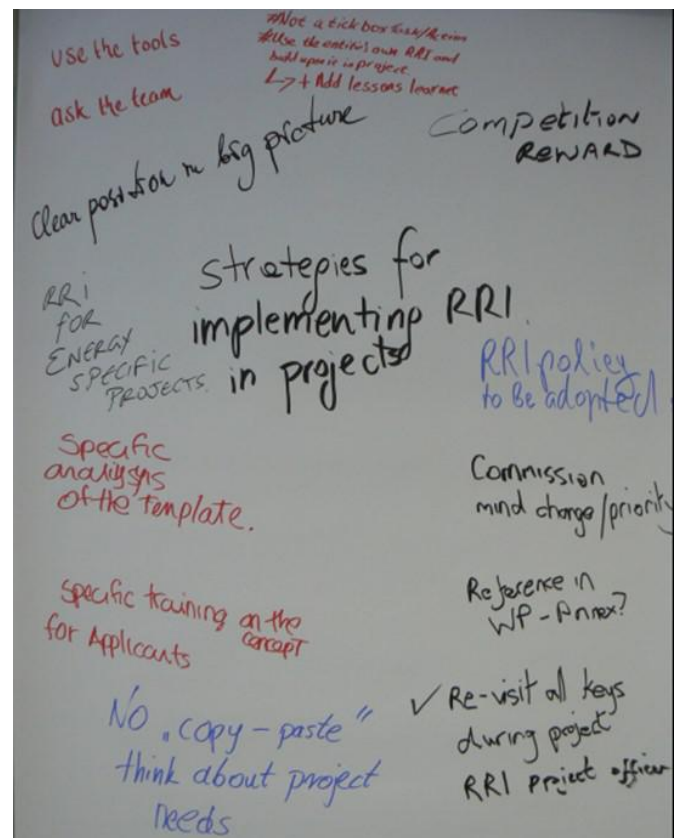 use the tools
ask the team
#Not a tick box
#Use the entitie's own RRI and
build upon it in project.
↳ + Add lessons learnet
Competition
REWARD
Clear position in big picture
Strategies for
implementing RRI
in projects
RRi
FOR
ENERGY
SPECIFIC
PROJECTS.
RRI policy
to be adopted
Specific
analysys
of the template.
Commission
mind change/priority
Specific training on the
concept
for Applicants
Reference in
WP-Annex?
No "copy-paste"
think about project
needs
✓ Re-visit all keys
during project
RRI project officer